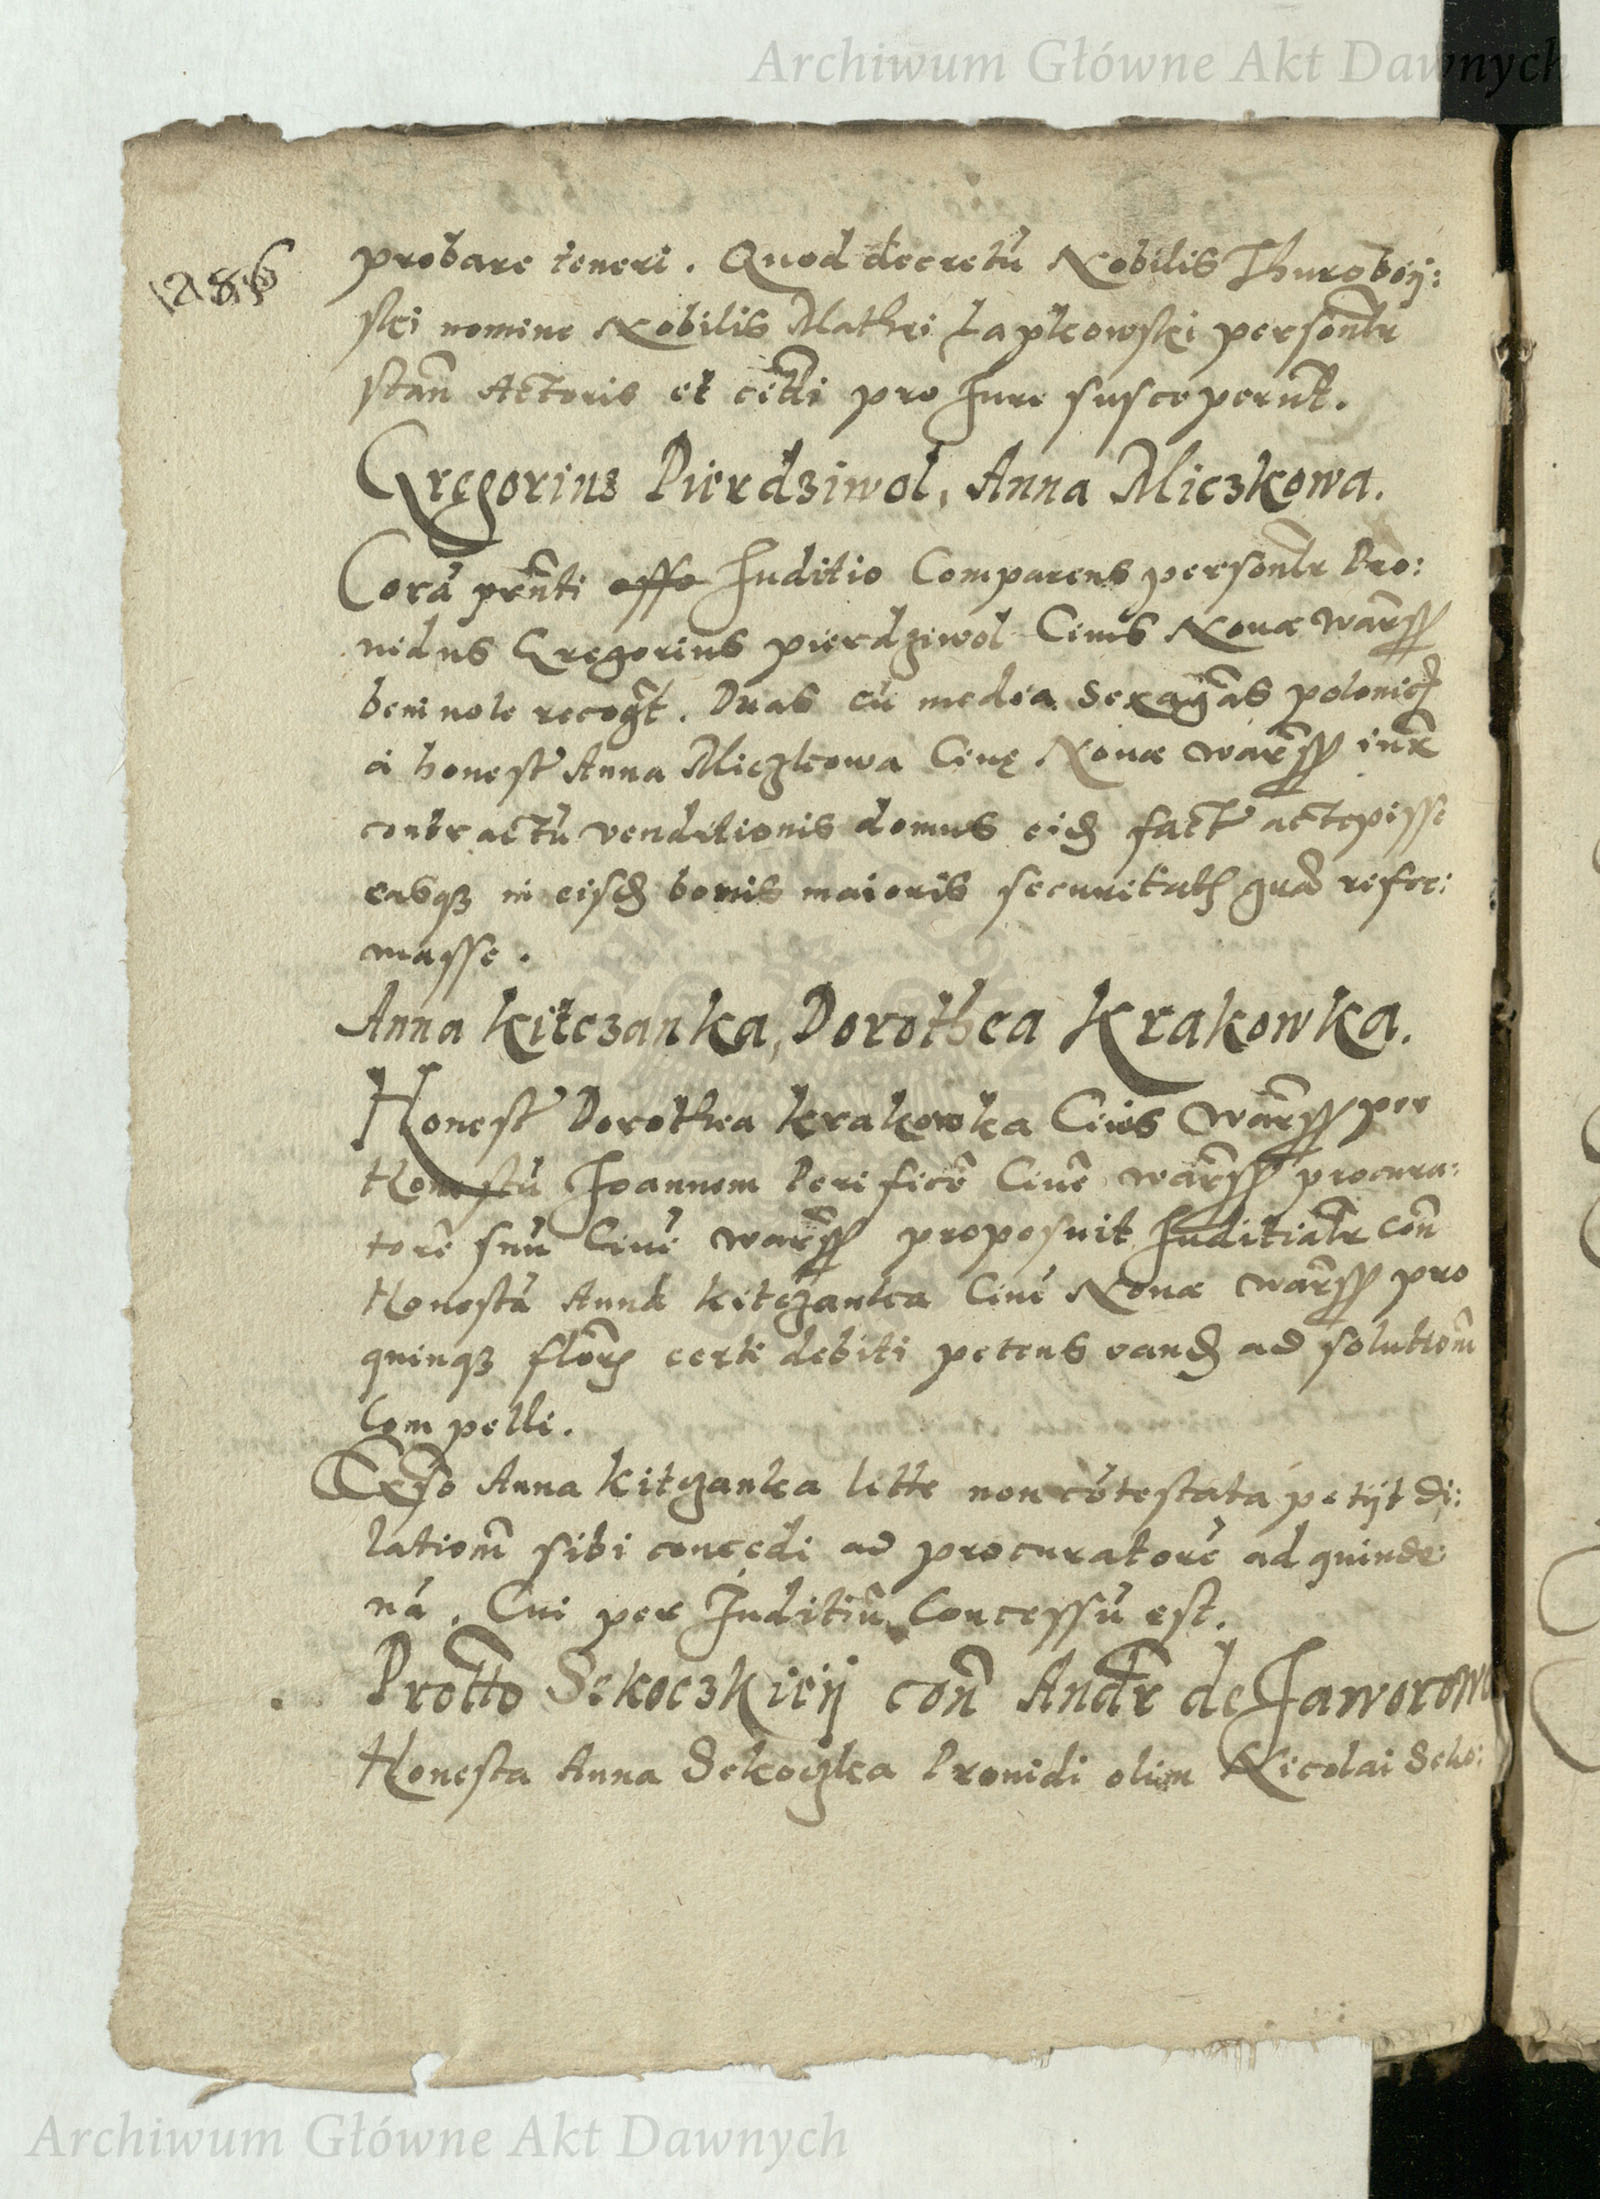 Archiwum Główne Akt Dawnych
1286
probare teneri. Quod decretū Nobilis Thuroboij:
ski nomine Nobilis Mathei Lapkowski personlr
stan Actoris et cetti pro Jure susceperūt.
Gregorius Pierdziwol, Anna Miczkowa.
Corā prnti Juditio Comparens personlr Pro:
uidus Gregorius pierdziwol Ciuis Nouæ warss
beniuole recogt. Duas cū media Sexagas polonic
à honest Anna Miczkowa Ciue Nouæ warss iux
contractū venditionis domus eid fact accepisse
easq in eisd bonis maioris securitat grā refor:
masse.
Anna Kitczanka, Dorothea Krakowka.
Honest Dorothea Krakowka Ciuis warss per
Honestū Joannem Penificē Ciuē warss procura:
torē suū Ciuē warss proposuit Juditialr con
Honestā Annā Kitczanka Ciuē Nouæ warss pro
quinq flor certi debiti petens eand ad solutiom
Compelli.
Exso Anna Kitczanka litte non cōtestata petijt di:
lationm sibi concedi ad procuratorē ad quinde:
nā. Cui per Juditiū Concessū est.
Protto Sekoczkieij con Andr de Jaworowo
Honesta Anna Sekoczka Prouidi olim Nicolai Seko:
Archiwum Główne Akt Dawnych